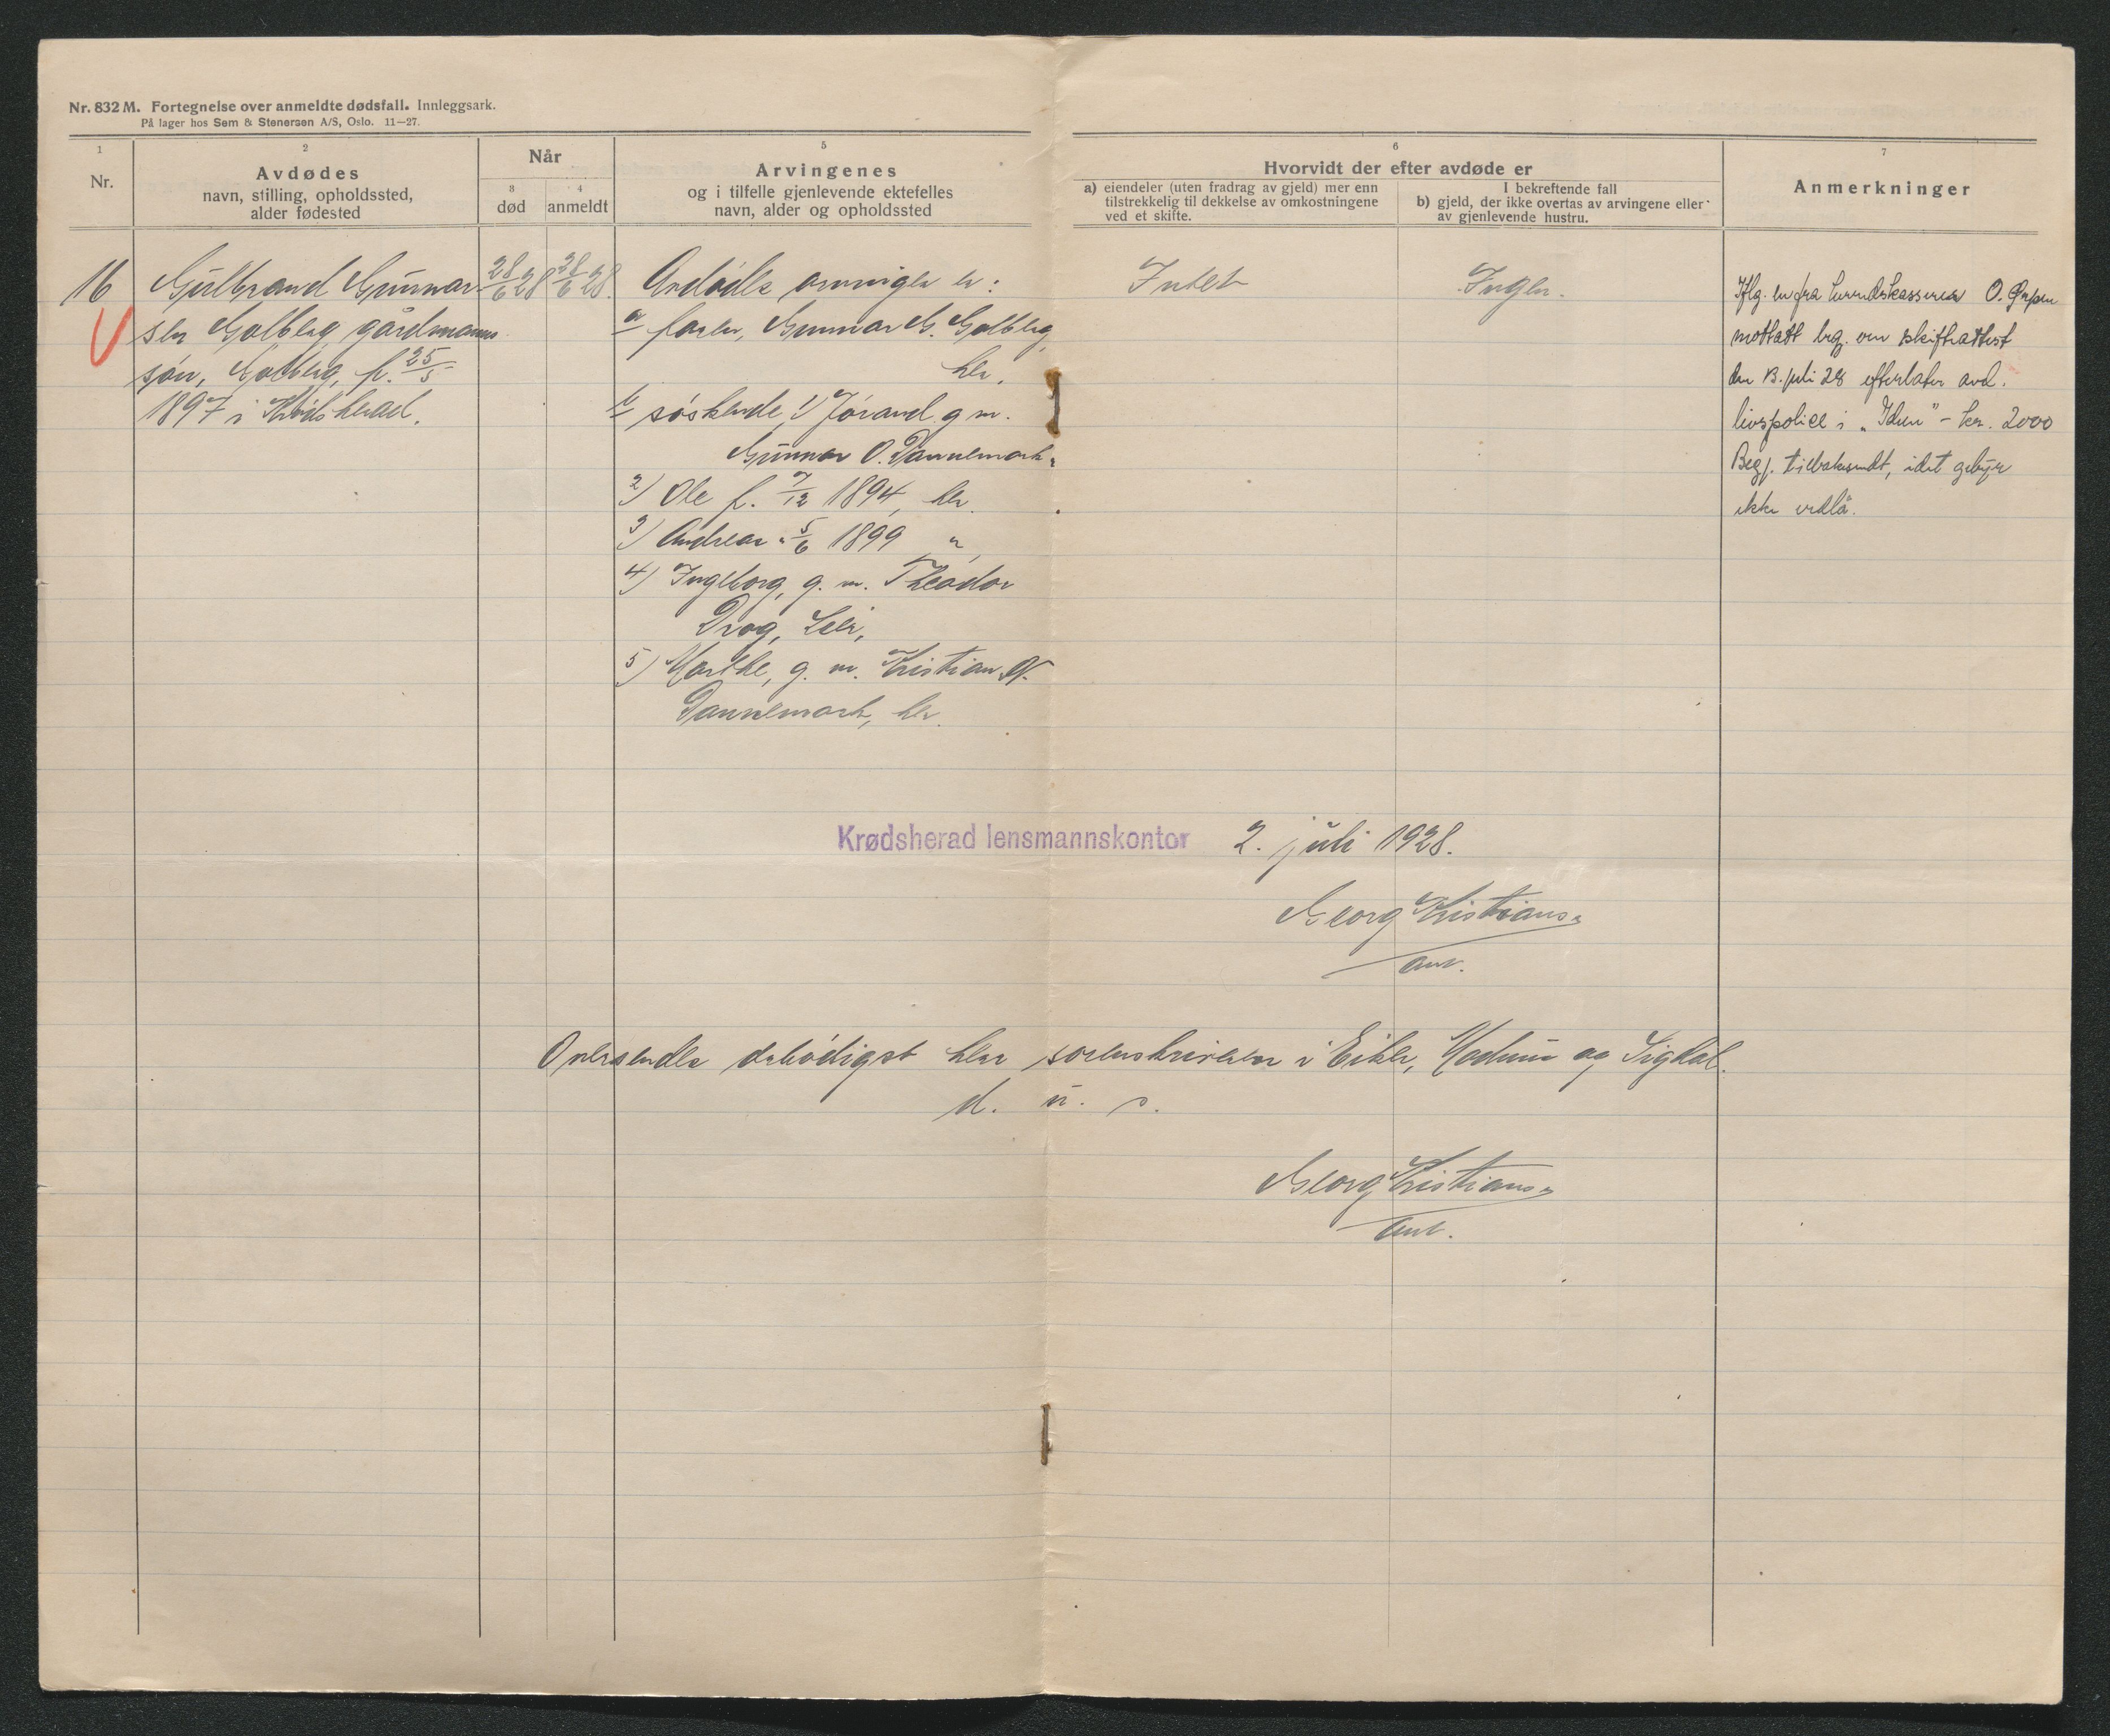 Nr. 832 M. Fortegnelse over anmeldte dødsfall. Innleggsark.
På lager hos Sem & Stenersen A/S, Oslo. 11—27.
1
Nr.
2
Avdødes
navn, stilling, opholdssted,
alder fødested
Når
3
død
4
anmeldt
5
Arvingenes
og i tilfelle gjenlevende ektefelles
navn, alder og opholdssted
6
Hvorvidt der efter avdøde er
a) eiendeler (uten fradrag av gjeld) mer enn
tilstrekkelig til dekkelse av omkostningene
ved et skifte.
I bekreftende fall
b) gjeld, der ikke overtas av arvingene eller
av gjenlevende hustru.
7
Anmerkninger
16
Gulbrand Gunnar-
sen Golberg, gårdmanns
søn, Golberg, f. 25/5
1897 i Krødsherad.
28/6 28
28/6 28.
Avdødes arvinger er:
a faren, Gunnar G. Golberg,
her.
b søskende 1) Jørand g. m.
Gunnar O. Dannemark,
2) Ole f. 7/12 1894, her.
3) Andrea " 5/6 1899 "
4) Ingeborg, g. m. Theodor
Drog, Lier,
5) Marthe, g. m. Kristian N.
Dannemark, her.
Intet
Ingen.
Iflg. en fra herredskasserer O.
mottatt beg. om skifteattest
den 13. juli 28 efterlater avd.
livspolice i "Idun" - kr. 2000
Begj. tilbakesendt, idet gebyr
ikke vedlå.
Krødsherad lensmannskontor 2. juli 1928.
Georg Kristians.
aut.
Oversendes ærbødigst herr sorenskriveren i Eiker, Modum og Sigdal.
d. u. s.
Georg Kristians.
aut.